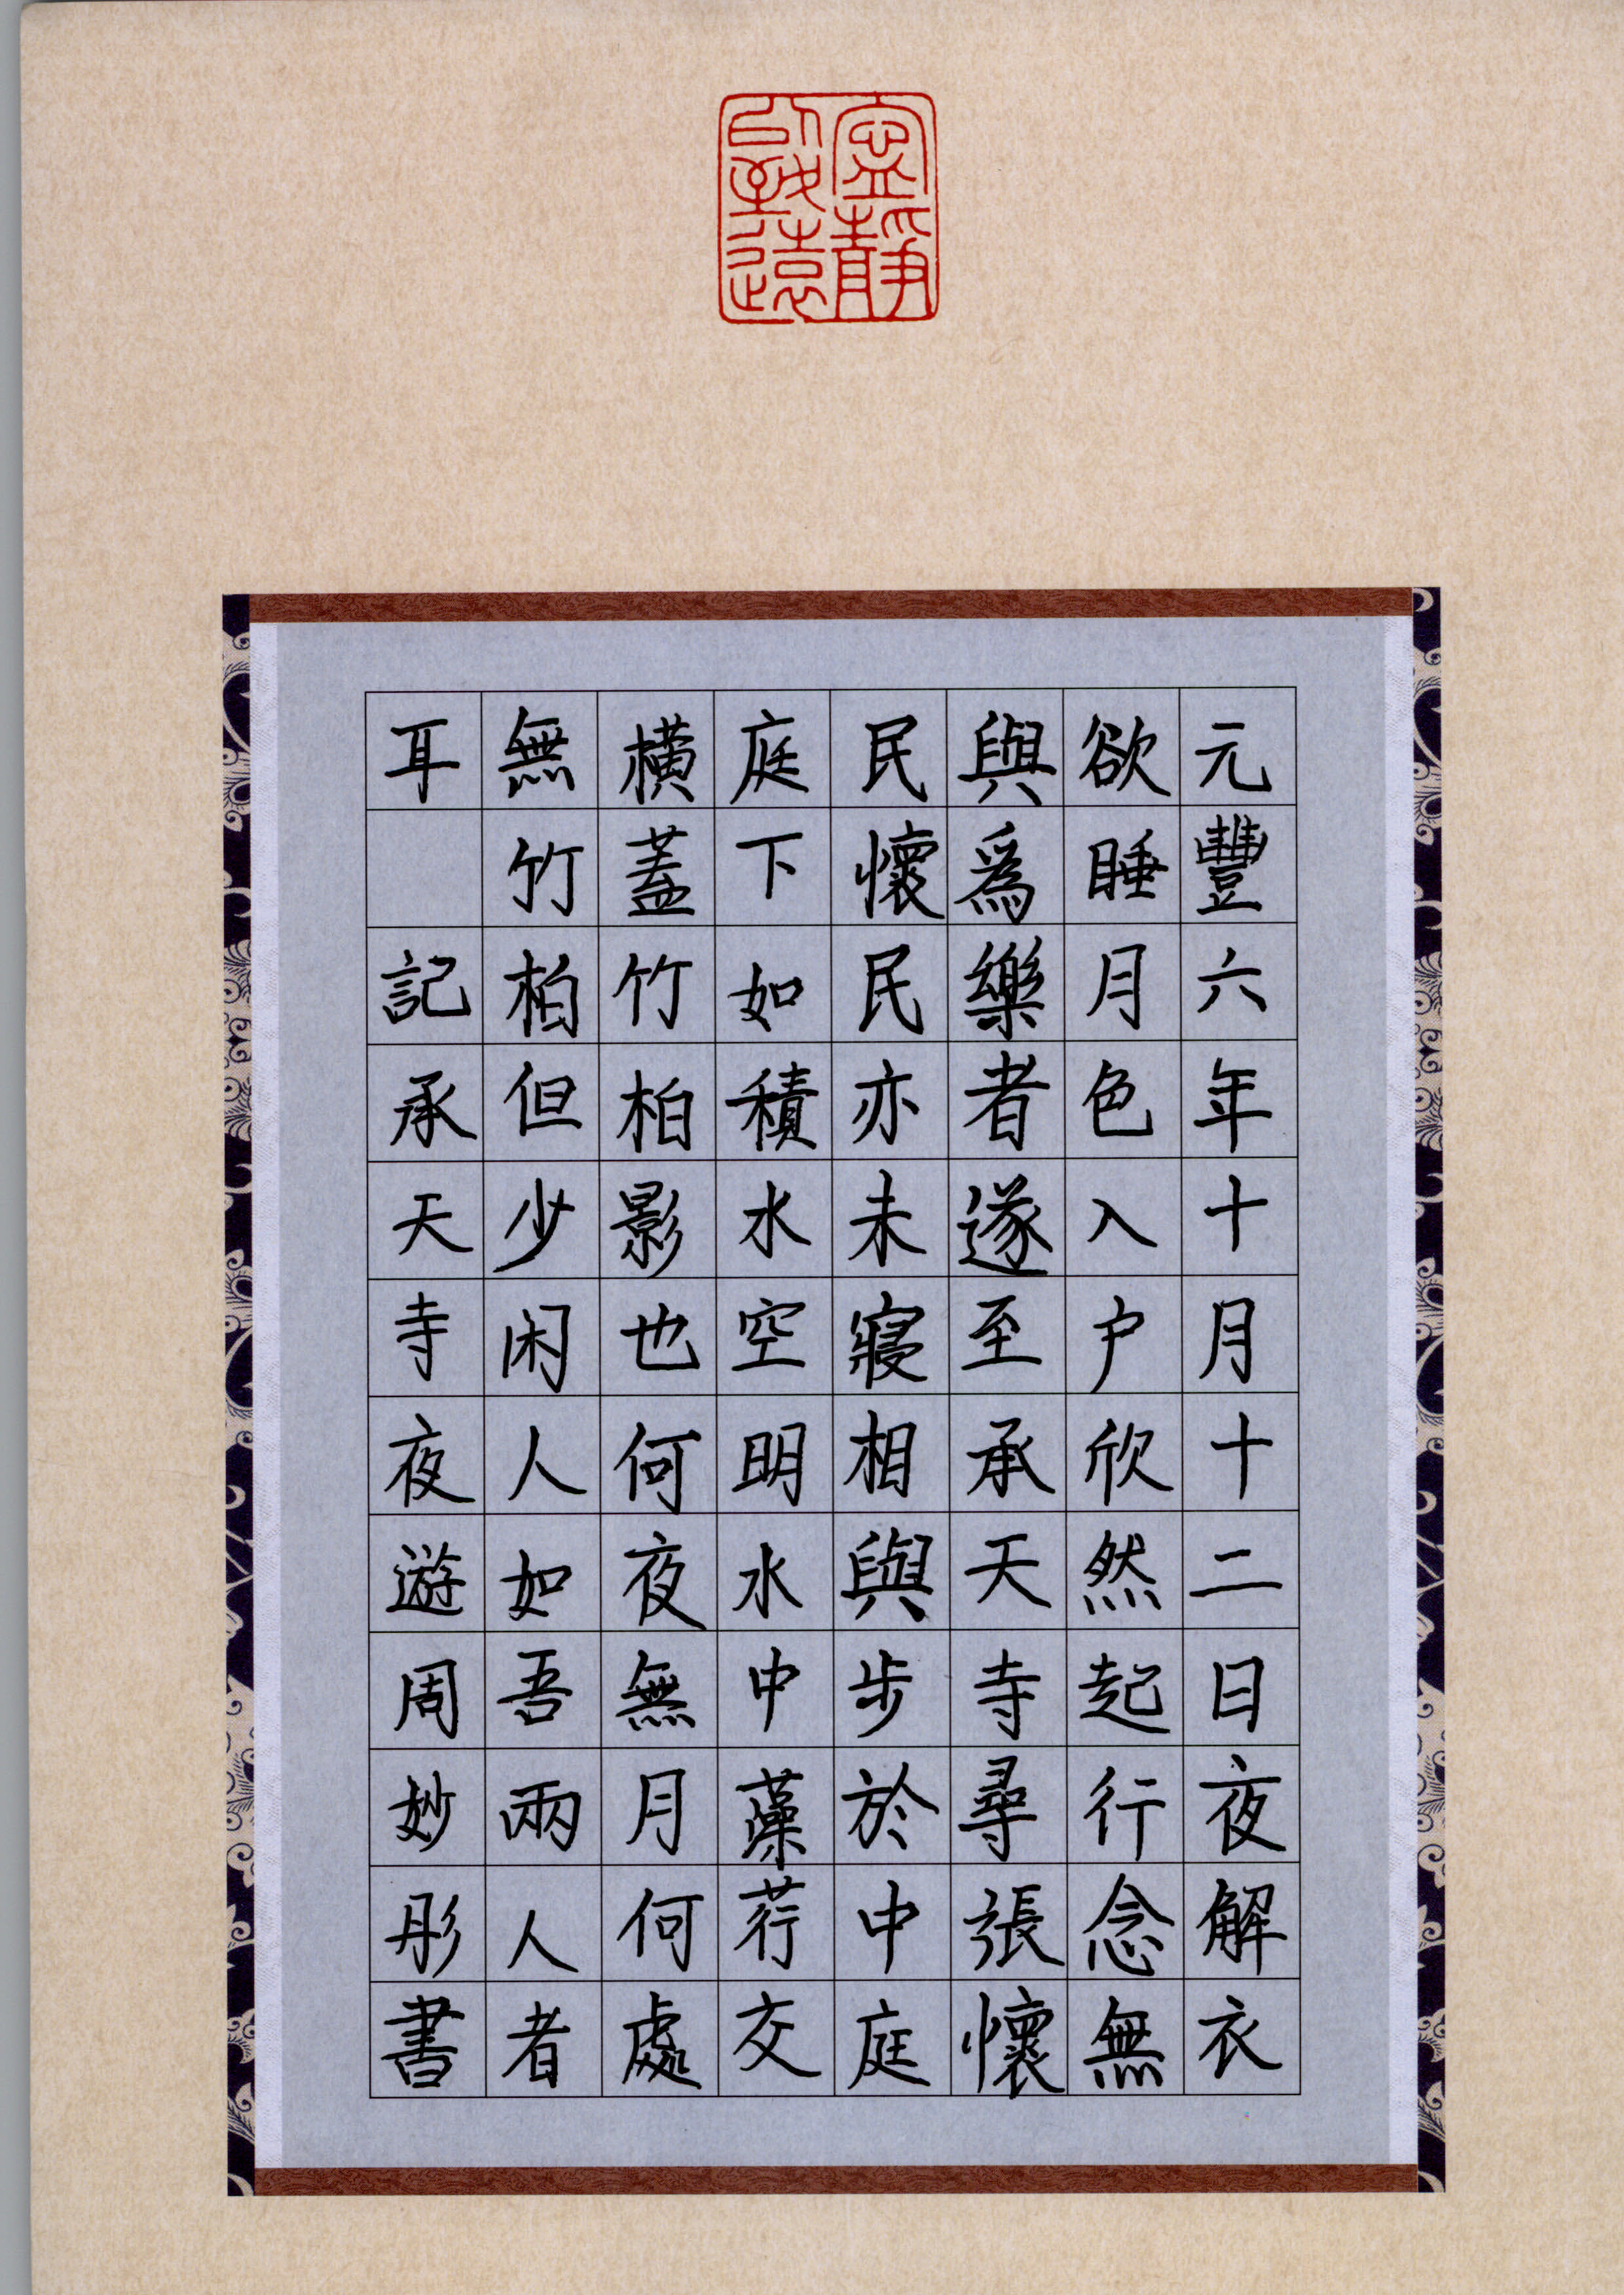 寧靜
以致遠
元豐六年十月十二日夜解衣
欲睡月色入户欣然起行念無
與爲樂者遂至承天寺尋張懷
民懷民亦未寢相與步於中庭
庭下如積水空明水中藻荇交
橫蓋竹柏影也何夜無月何處
無竹柏但少闲人如吾兩人者
耳 記承天寺夜遊周妙彤書